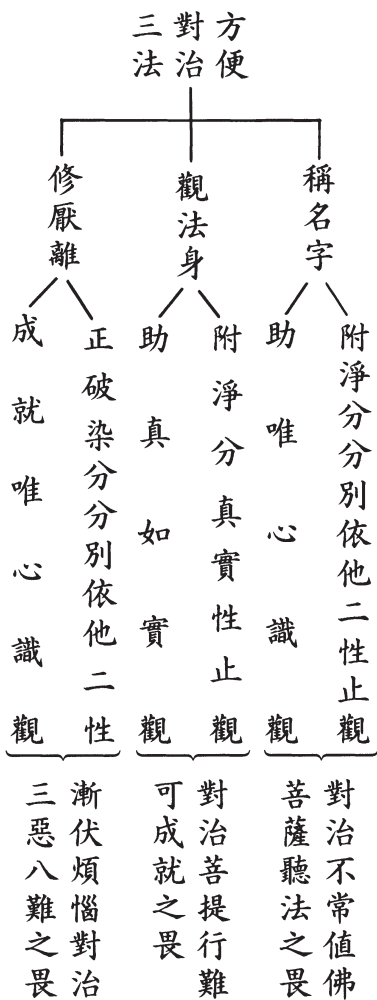 方便
對治
三法
稱名字
附淨分分別依他二性止觀
助唯心識觀
對治不常值佛
菩薩聽法之畏
觀法身
附淨分真實性止觀
助真如實觀
對治菩提行難
可成就之畏
修厭離
正破染分分別依他二性
成就唯心識觀
漸伏煩惱對治
三惡八難之畏